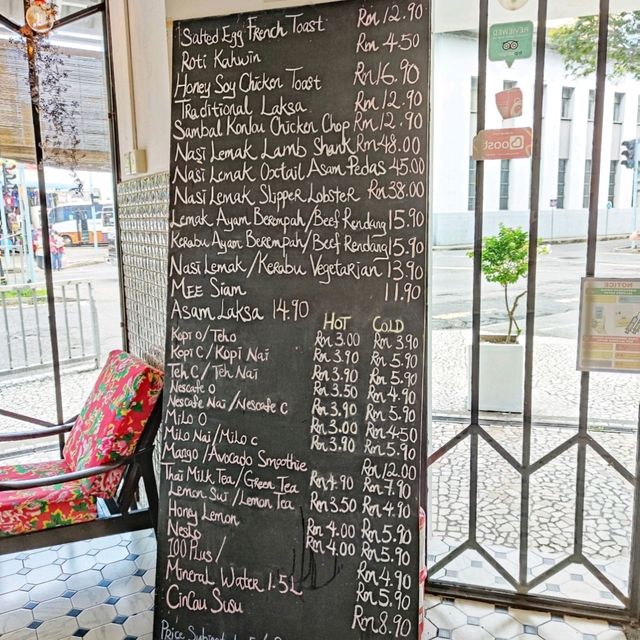 Salted Egg French Toast Rm 12.90
Roti Kahwin Rm 4.50
Honey Soy Chicken Toast Rm 16.90
Traditional Laksa Rm 12.90
Sambal Konlau Chicken Chop Rm 12.90
Nasi Lemak Lamb Shank Rm 48.00
Nasi Lemak Oxtail Asam Pedas 45.00
Nasi Lemak Slipper Lobster Rm 38.00
Lemak Ayam Berempah/Beef Rendang 15.90
Kerabu Ayam Berempah/Beef Rendang 15.90
Nasi Lemak/Kerabu Vegetarian 13.90
Mee Siam 11.90
Asam Laksa 14.90
HOT COLD
Kopi O/Teh O Rm 3.00 Rm 3.90
Kopi C/Kopi Nai Rm 3.90 Rm 5.90
Teh C/Teh Nai Rm 3.90 Rm 5.90
Nescafe O Rm 3.50 Rm 4.90
Nescafe Nai/Nescafe C Rm 3.90 Rm 5.90
Milo O Rm 3.00 Rm 4.50
Milo Nai/Milo C Rm 3.90 Rm 5.90
Mango/Avocado Smoothie Rm 12.00
Thai Milk Tea/Green Tea Rm 4.90 Rm 7.90
Lemon Sui/Lemon Tea Rm 3.50 Rm 4.90
Honey Lemon Rm 4.00 Rm 5.90
Neslo Rm 4.00 Rm 5.90
100 Plus/ Rm 4.90
Mineral Water 1.5L Rm 5.90
Cincau Susu Rm 8.90
Price
REVIEWED
Boost